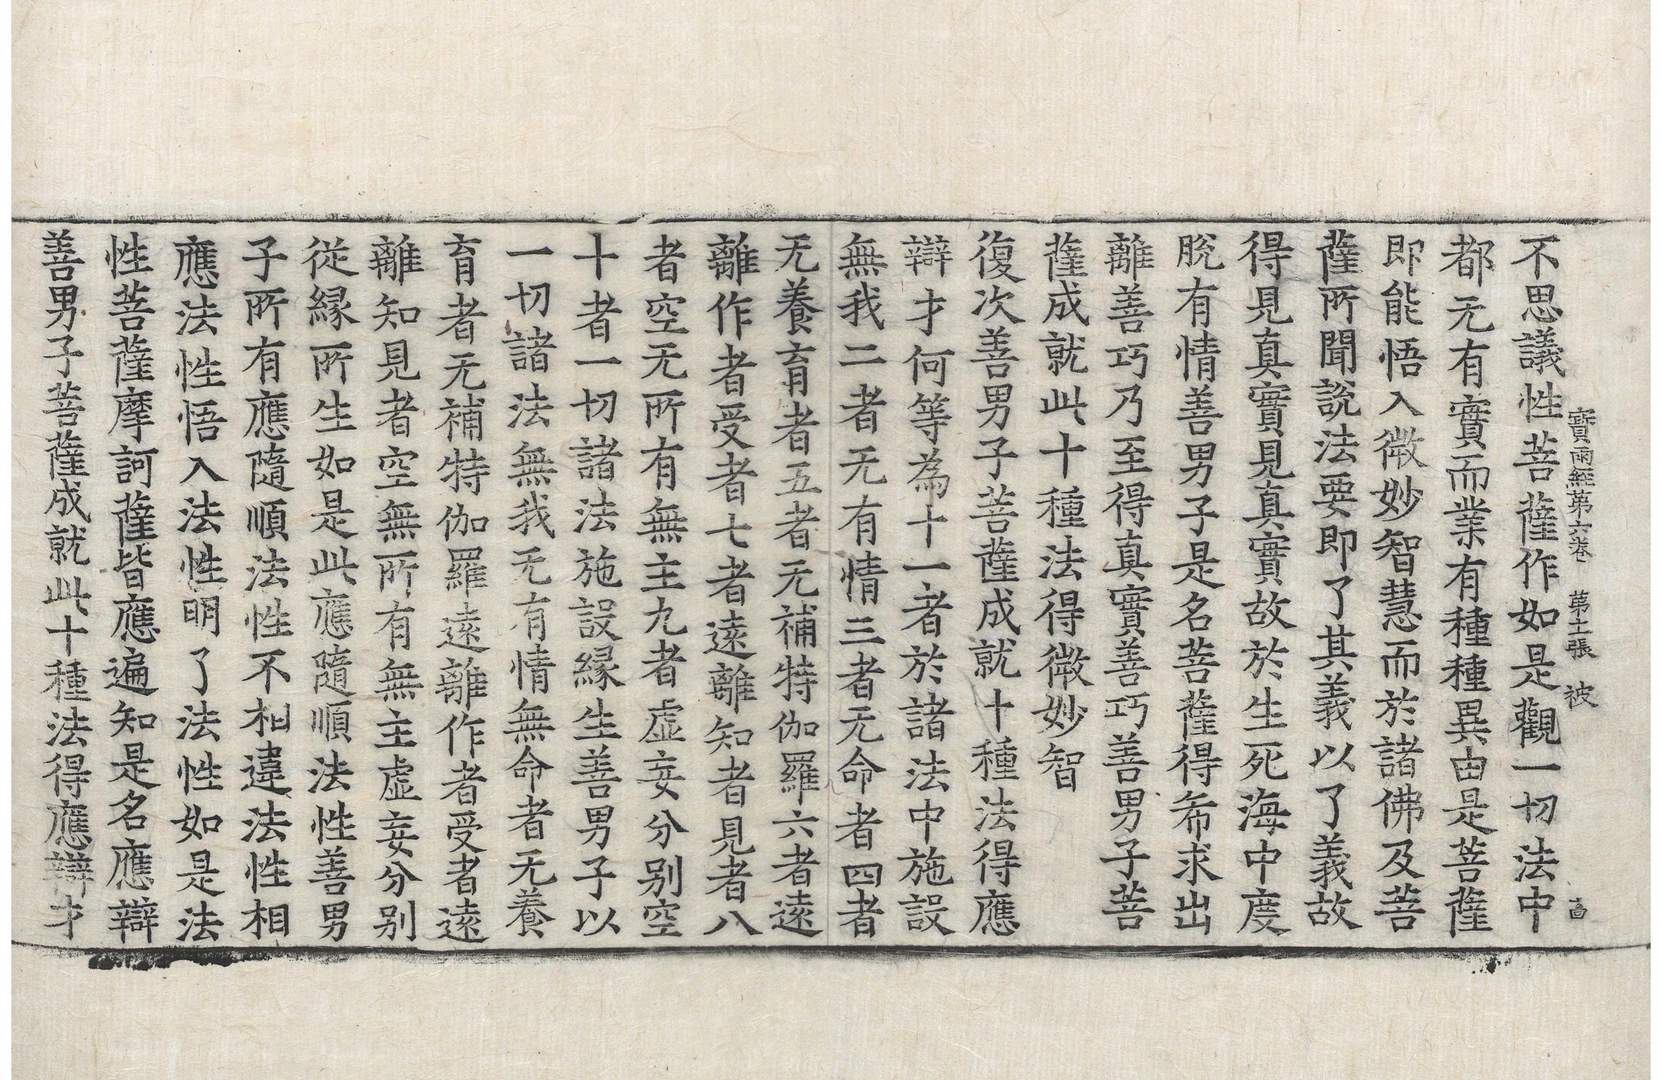 寶雨經第六卷 第十二張 被
不思議性菩薩作如是觀一切法中
都无有實而業有種種異由是菩薩
即能悟入微妙智慧而於諸佛及菩
薩所聞說法要即了其義以了義故
得見真實見真實故於生死海中度
脫有情善男子是名菩薩得希求出
離善巧乃至得真實善巧善男子菩
薩成就此十種法得微妙智
復次善男子菩薩成就十種法得應
辯才何等為十一者於諸法中施設
無我二者无有情三者无命者四者
无養育者五者无補特伽羅六者遠
離作者受者七者遠離知者見者八
者空无所有無主九者虛妄分別空
十者一切諸法施設緣生善男子以
一切諸法無我无有情無命者无養
育者无補特伽羅遠離作者受者遠
離知見者空無所有無主虛妄分別
從緣所生如是此應隨順法性善男
子所有應隨順法性不相違法性相
應法性悟入法性明了法性如是法
性菩薩摩訶薩皆應遍知是名應辯
善男子菩薩成就此十種法得應辯才